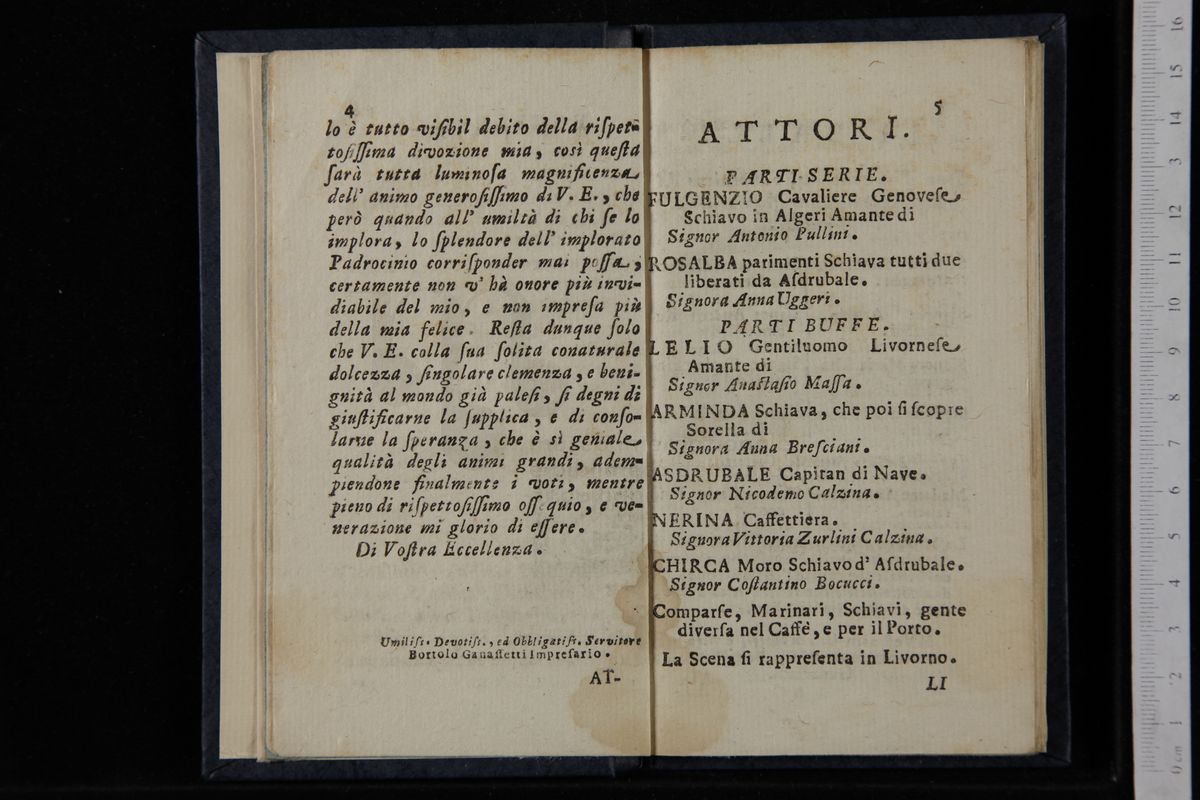 4
lo è tutto viſibil debito della riſpet-
toſiſſima divozione mia, così queſta
ſarà tutta luminoſa magnificenza
dell' animo generoſiſſimo di V. E., che
però quando all' umiltà di chi ſe lo
implora, lo ſplendore dell' implorato
Padrocinio corriſponder mai poſſa,
certamente non v' hà onore più invi-
diabile del mio, e non impreſa più
della mia felice. Reſta dunque ſolo
che V. E. colla ſua ſolita conaturale
dolcezza, ſingolare clemenza, e beni-
gnità al mondo già paleſi, ſi degni di
giuſtificarne la ſupplica, e di conſo-
larne la ſperanza, che è sì geniale
qualità degli animi grandi, adem-
piendone finalmente i voti, mentre
pieno di riſpettoſiſſimo oſſequio, e ve-
nerazione mi glorio di eſſere.
Di Voſtra Eccellenza.
Umiliſs. Devotiſs., ed Obbligatiſs. Servitore
Bortolo Ganaſſetti Impreſario.
AT-
5
ATTORI.
PARTI SERIE.
FULGENZIO Cavaliere Genoveſe
Schiavo in Algeri Amante di
Signor Antonio Pullini.
ROSALBA parimenti Schiava tutti due
liberati da Aſdrubale.
Signora Anna Uggeri.
PARTI BUFFE.
LELIO Gentiluomo Livorneſe
Amante di
Signor Anaſtaſio Maſſa.
ARMINDA Schiava, che poi ſi ſcopre
Sorella di
Signora Anna Breſciani.
ASDRUBALE Capitan di Nave.
Signor Nicodemo Calzina.
NERINA Caffettiera.
Signora Vittoria Zurlini Calzina.
CHIRCA Moro Schiavo d' Aſdrubale.
Signor Coſtantino Bocucci.
Comparſe, Marinari, Schiavi, gente
diverſa nel Caffè, e per il Porto.
La Scena ſi rappreſenta in Livorno.
LI
0 cm 1 2 3 4 5 6 7 8 9 10 11 12 13 14 15 16